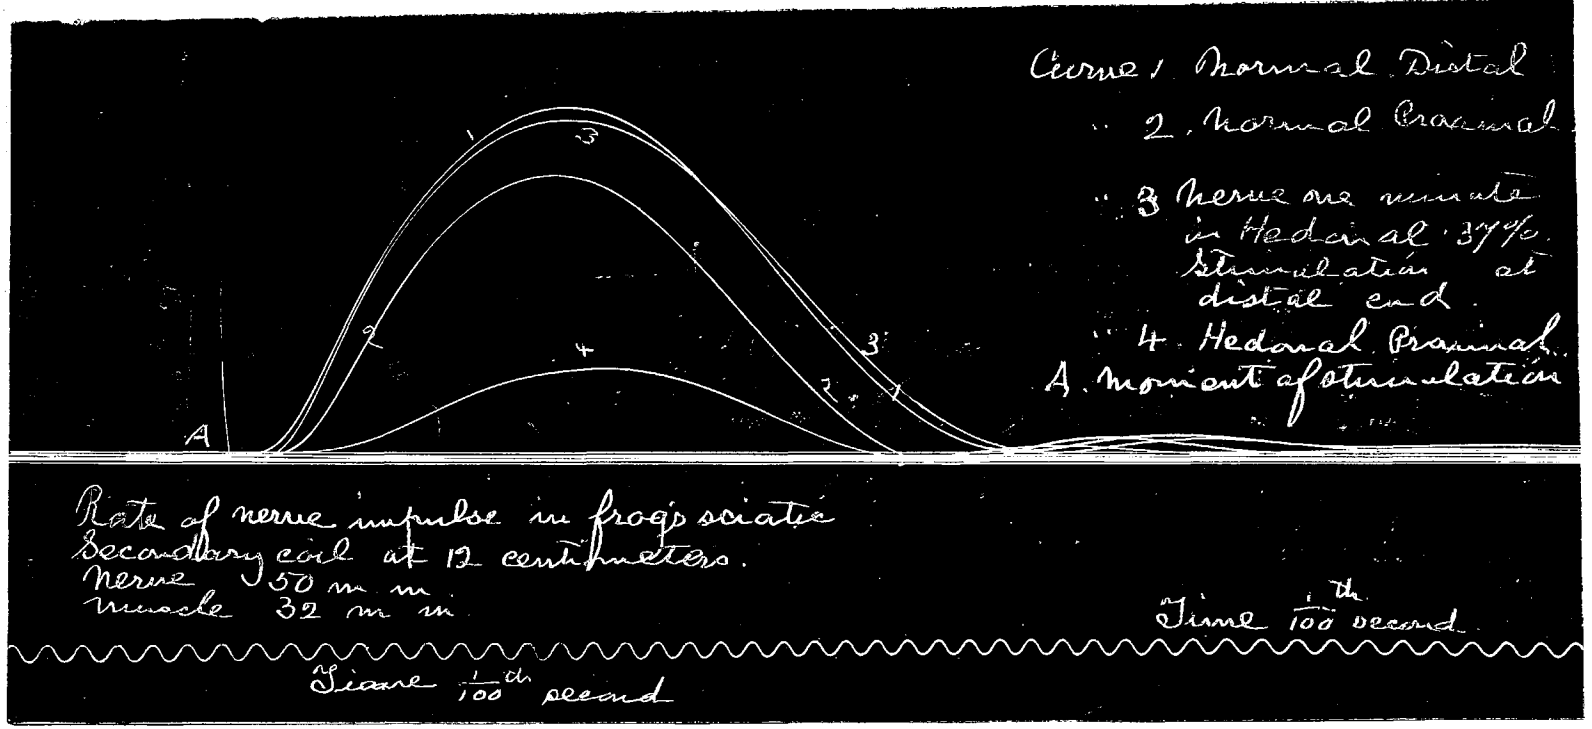 Curve 1 Normal Distal
" 2. Normal Proximal
" 3 Nerve one minute
in Hedonal .37%.
Stimulation at
distal end.
" 4. Hedonal Proximal.
A. Moment of stimulation
1
3
2
4
3
2
1
A
Rate of nerve impulse in frog's sciatic
Secondary coil at 12 centimeters.
Nerve 50 m m
Muscle 32 m m.
Time 1/100 th second
Time 1/100 th second